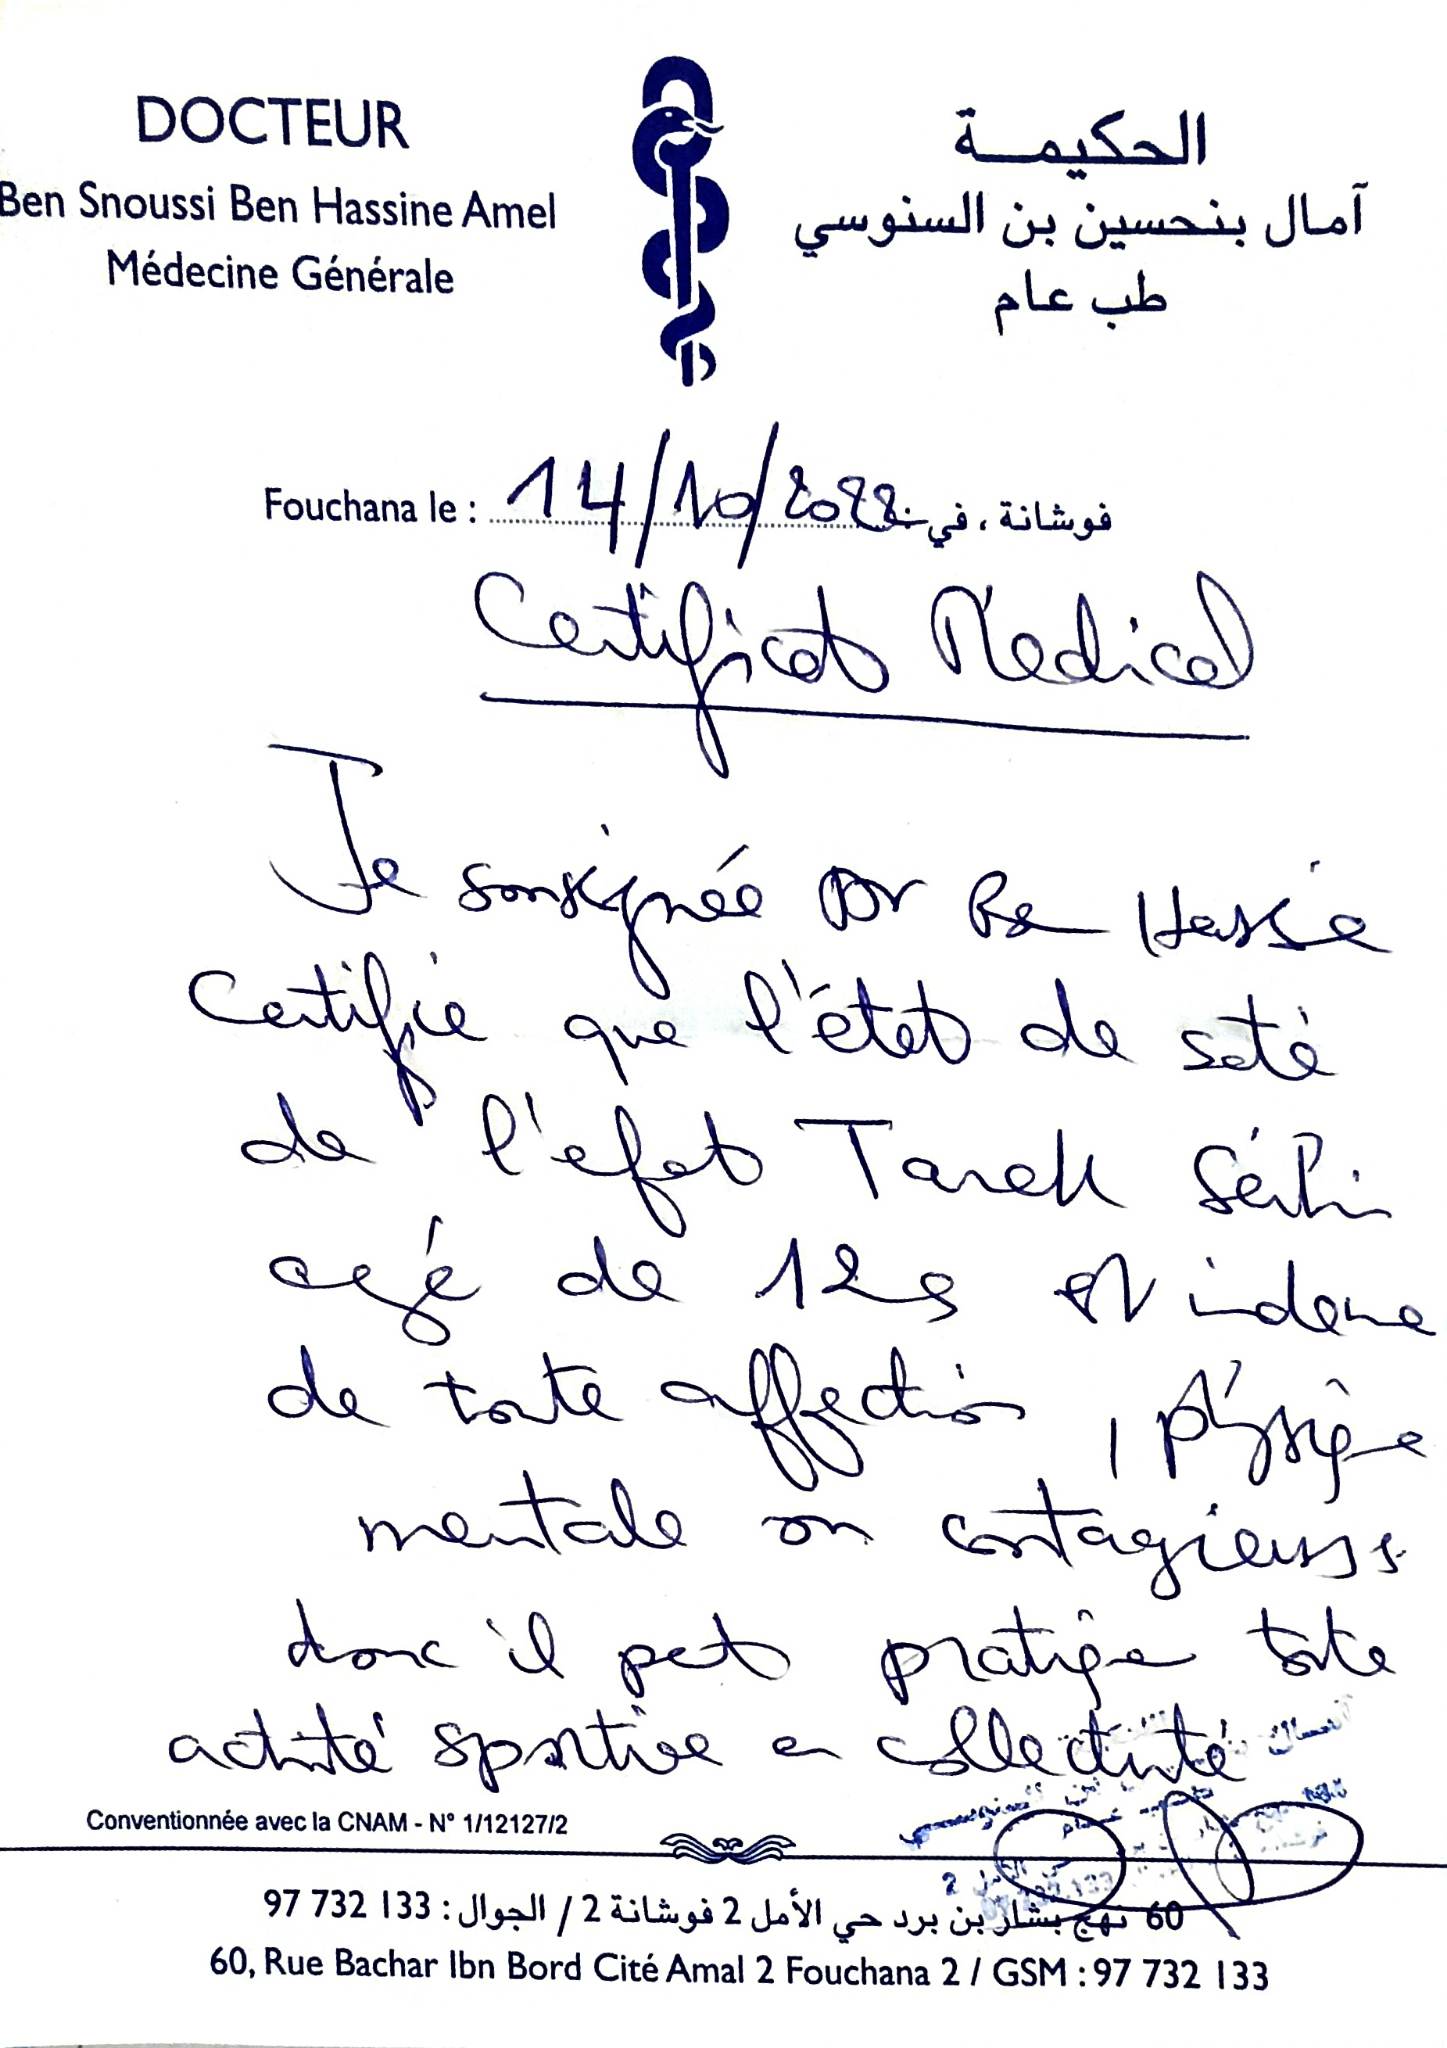 DOCTEUR
Ben Snoussi Ben Hassine Amel
Médecine Générale
الحكيمة
آمال بنحسين بن السنوسي
طب عام
Fouchana le : 14/10/2022 فوشانة ، في
Certificat Médical
Je sousignée Dr Be Hassie
Certifie que l'état de saté
de l'efat Tarek
agé de 12 et indeme
de toute affection, physiqe
mentale ou contagieuse
donc il peut pratiqe toute
activité sportive en collectivité
Conventionnée avec la CNAM - N° 1/12127/2
60 نهج بشار بن برد حي الأمل 2 فوشانة 2 / الجوال : 133 732 97
60, Rue Bachar Ibn Bord Cité Amal 2 Fouchana 2 / GSM : 97 732 133